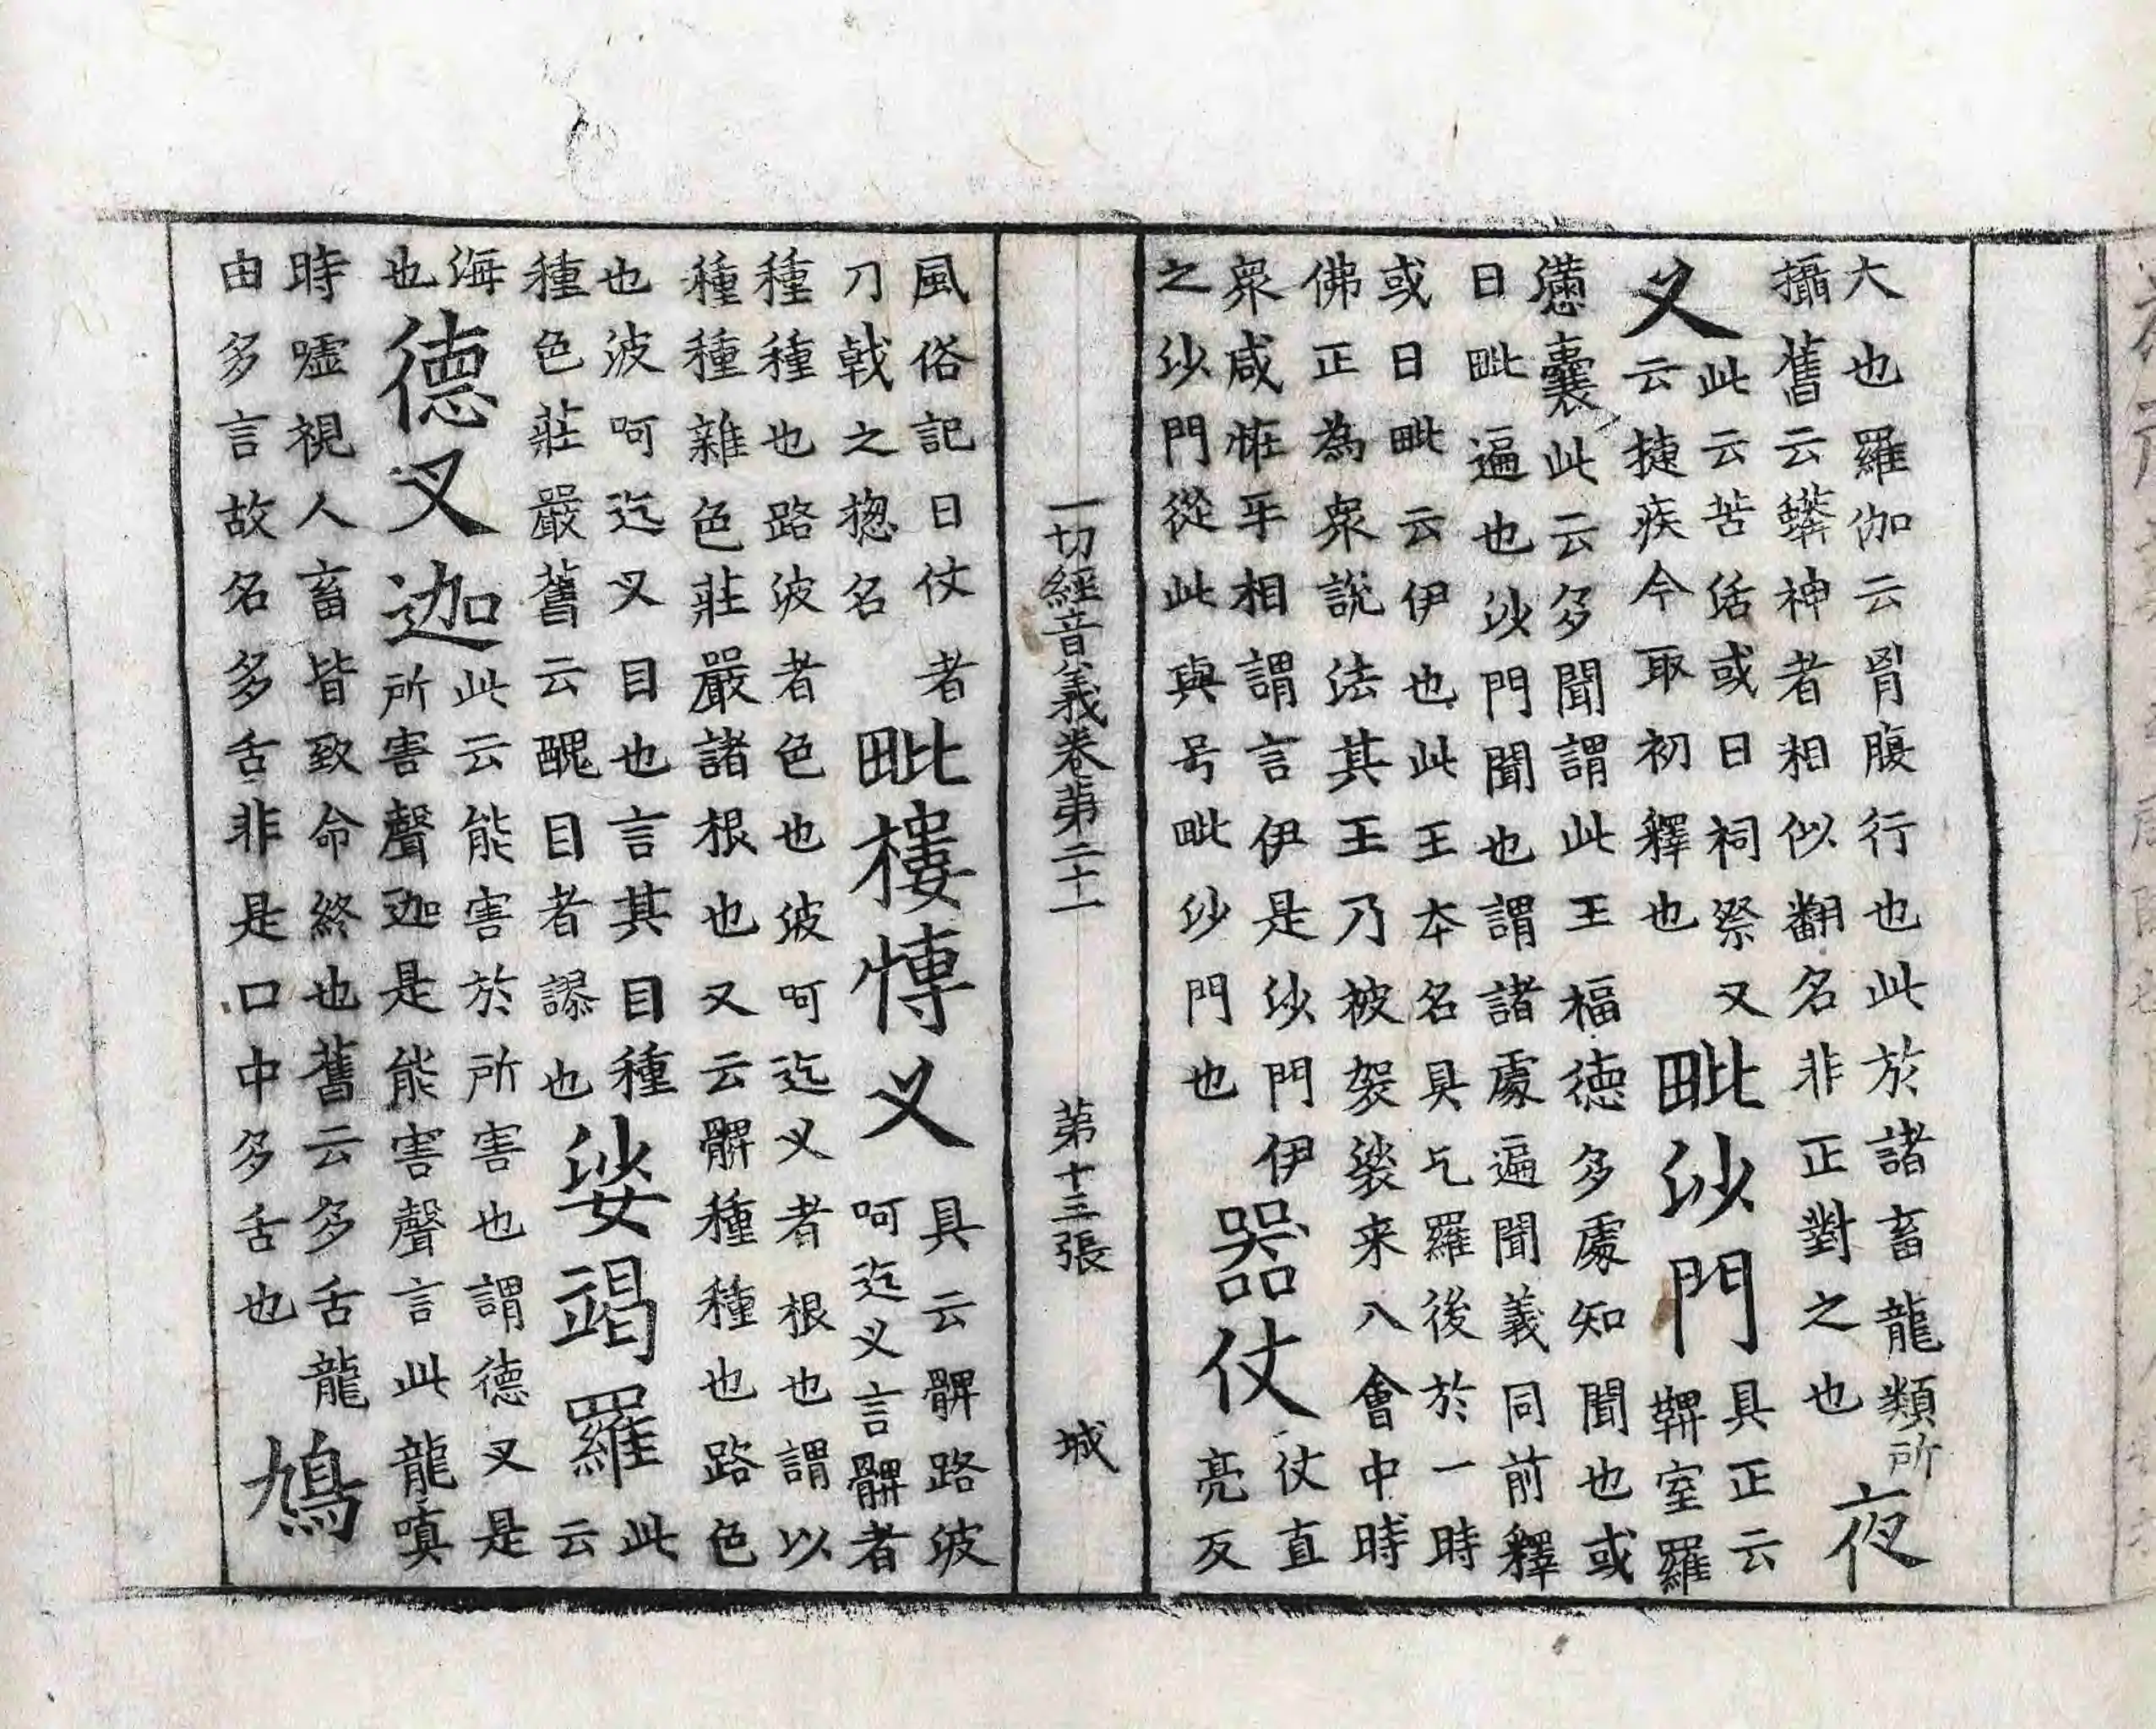 大也羅伽云胷腹行也此於諸畜龍類所
攝舊云蟒神者相似翻名非正對之也
夜
叉
此云苦活或曰祠祭又
云捷疾今取初釋也
毗沙門
具正云
鞞室羅
懣囊此云多聞謂此王福德多處知聞也或
曰毗遍也沙門聞也謂諸處遍聞義同前釋
或曰毗云伊也此王本名具乞羅後於一時
佛正為衆說法其王乃被袈裟来入會中時
衆咸恠乎相謂言伊是沙門伊
之沙門從此與号毗沙門也
器仗
仗直
亮反
一切經音義卷第二十一 第十三張 城
風俗記曰仗者
刀戟之揔名
毗樓博叉
具云髀路波
呵迄叉言髀者
種種也路波者色也波呵迄叉者根也謂以
種種雜色莊嚴諸根也又云髀種種也路色
也波呵迄叉目也言其目種
種色莊嚴舊云醜目者謬也
娑竭羅
此
云
海
也
德叉迦
此云能害於所害也謂德叉是
所害聲迦是能害聲言此龍嗔
時噓視人畜皆致命終也舊云多舌龍
由多言故名多舌非是口中多舌也
鳩